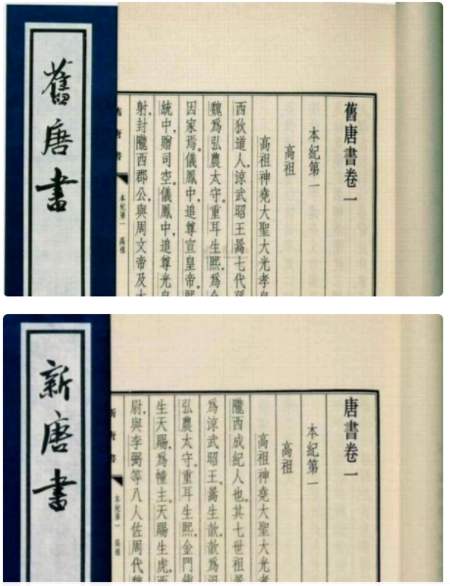 舊唐書
舊唐書卷一
本紀第一
高祖
高祖神堯大聖大光孝皇
西狄道人，涼武昭王暠七代孫
魏為弘農太守。重耳生熙，為金
因家焉。儀鳳中，追尊宣皇帝。熙
統中，贈司空。儀鳳中，追尊光皇
射，封隴西郡公，與周文帝及太
舊唐書 本紀第一 高祖
新唐書
唐書卷一
本紀第一
高祖
高祖神堯大聖大光孝
隴西成紀人也。其七世祖暠
為涼武昭王。暠生歆，歆為
弘農太守。重耳生熙，金門鎮
生天賜，為幢主。天賜生虎，西
尉，與李弼等八人佐周代魏
唐書 本紀第一 高祖